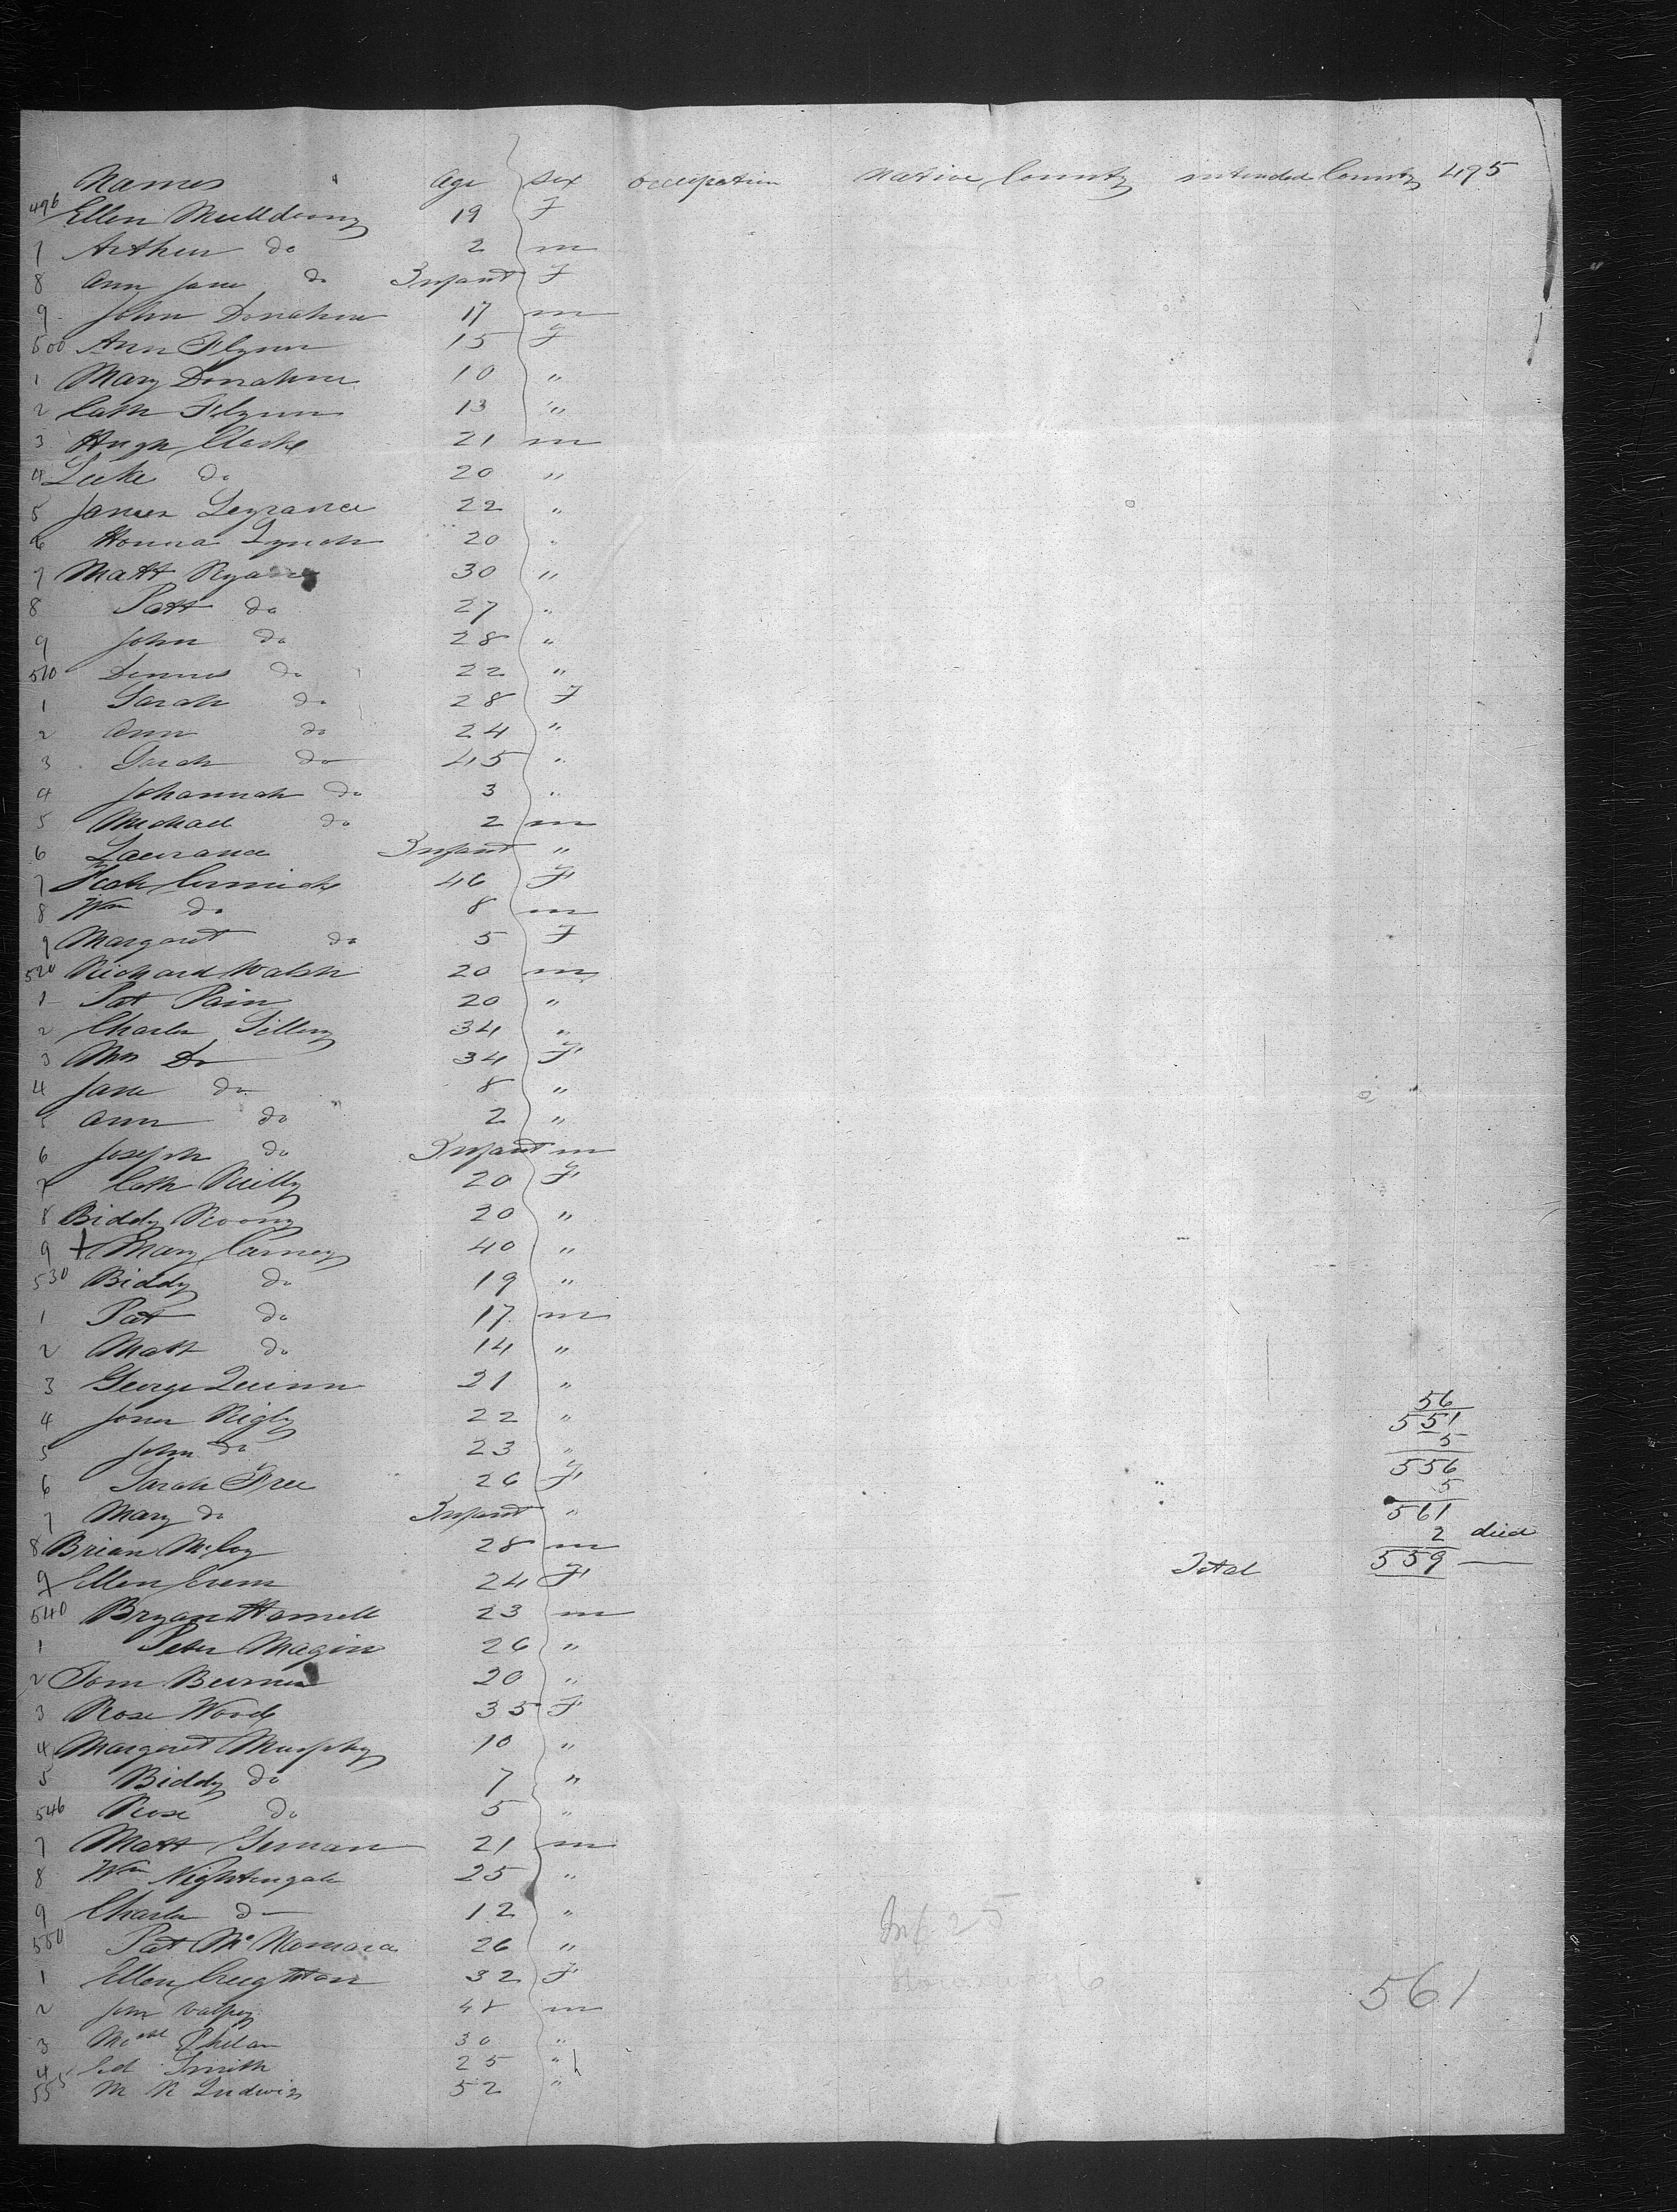 Names Age Sex Occupation Native County intended County 495
496 Ellen Mulldoony 19 F
7 Arthur do 2 m
8 Ann Jane do Infant F
9 John Donahue 17 m
500 Ann Flynn 15 F
1 Mary Donahue 10 "
2 Cath Flynn 13 "
3 Hugh Clarke 21 m
4 Luke do 20 "
5 James Legrance 22 "
6 Honna Lynch 20 "
7 Matt Ryan 30 "
8 Patt do 27 "
9 John do 28 "
510 Dennis do 22 "
1 Sarah do 28 F
2 Ann do 24 "
3 Sarah do 45 "
4 Johannah do 3 "
5 Michael do 2 m
6 Laurance Infant "
7 46 F
8 Wm do 8 m
9 Margaret do 5 F
520 Richard Walsh 20 m
1 Pat Pain 20 "
2 Charles Tillery 34 "
3 Mrs Do 34 F
4 Jane do 8 "
5 Ann do 2 "
6 Joseph do Infant m
7 Cath Reilly 20 F
8 Biddy Roony 20 "
9 + Mary Carney 40 "
530 Biddy do 19 "
1 Pat do 17 m
2 Matt do 14 "
3 George Quinn 21 "
4 Jones Rigby 22 "
5 John do 23 "
6 Sarah Free 26 F
7 Mary do Infant "
8 Brian McCoy 28 m
9 Ellen 24 F
540 Bryan Hamell 23 m
1 Peter Magin 26 "
2 Tom Burns 20 "
3 Rose Woods 35 F
4 Margaret Murphy 10 "
5 Biddy do 7 "
546 Rose do 5 "
7 Matt 21 m
8 Wm Nightengale 25 "
9 Charles do 12 "
550 Pat McNamara 26 "
1 Ellen Creighton 32 F
2 Jom 48 m
3 Michl Phelan 30 "
4 Ed Smith 25 "
555 M R Ludwig 52 "
56
551
5
556
5
561
2 died
Total 559
Inf 25
6
561